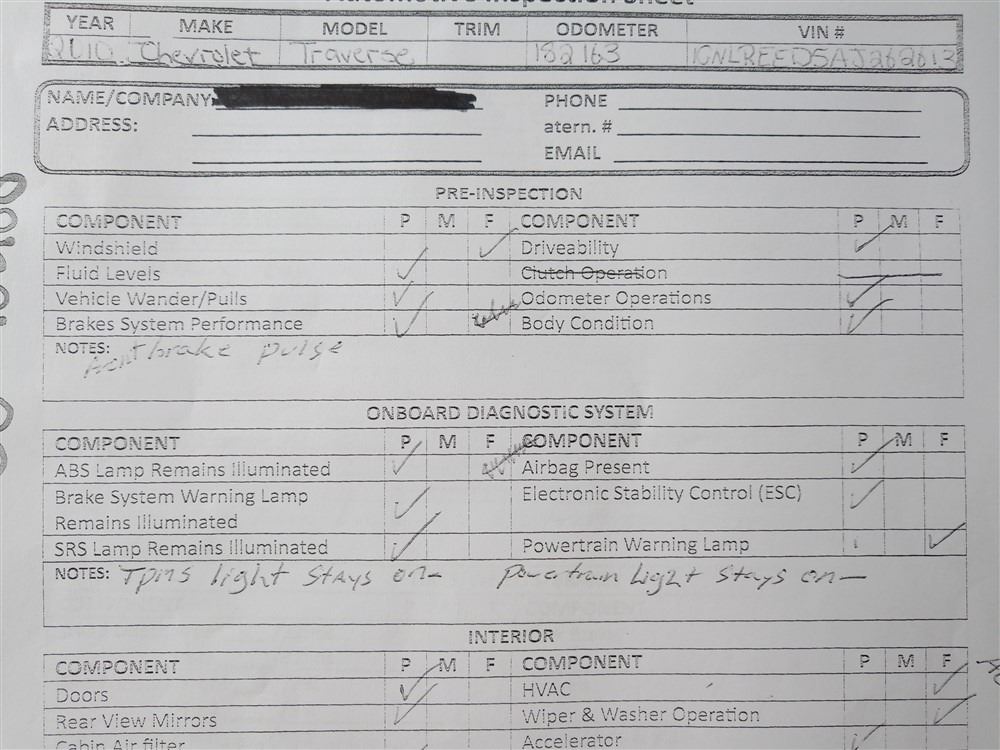 YEAR MAKE MODEL TRIM ODOMETER VIN #
2010 Chevrolet Traverse 182163
NAME/COMPANY PHONE
ADDRESS: atern. #
EMAIL
PRE-INSPECTION
COMPONENT P M F COMPONENT P M F
Windshield Driveability
Fluid Levels Clutch Operation
Vehicle Wander/Pulls Odometer Operations
Brakes System Performance Body Condition
NOTES: front brake pulse
ONBOARD DIAGNOSTIC SYSTEM
COMPONENT P M F COMPONENT P M F
ABS Lamp Remains Illuminated Airbag Present
Brake System Warning Lamp Electronic Stability Control (ESC)
Remains Illuminated
SRS Lamp Remains Illuminated Powertrain Warning Lamp
NOTES: TPMS light stays on- Powertrain Light stays on-
INTERIOR
COMPONENT P M F COMPONENT P M F
Doors HVAC
Rear View Mirrors Wiper & Washer Operation
Cabin Air filter Accelerator